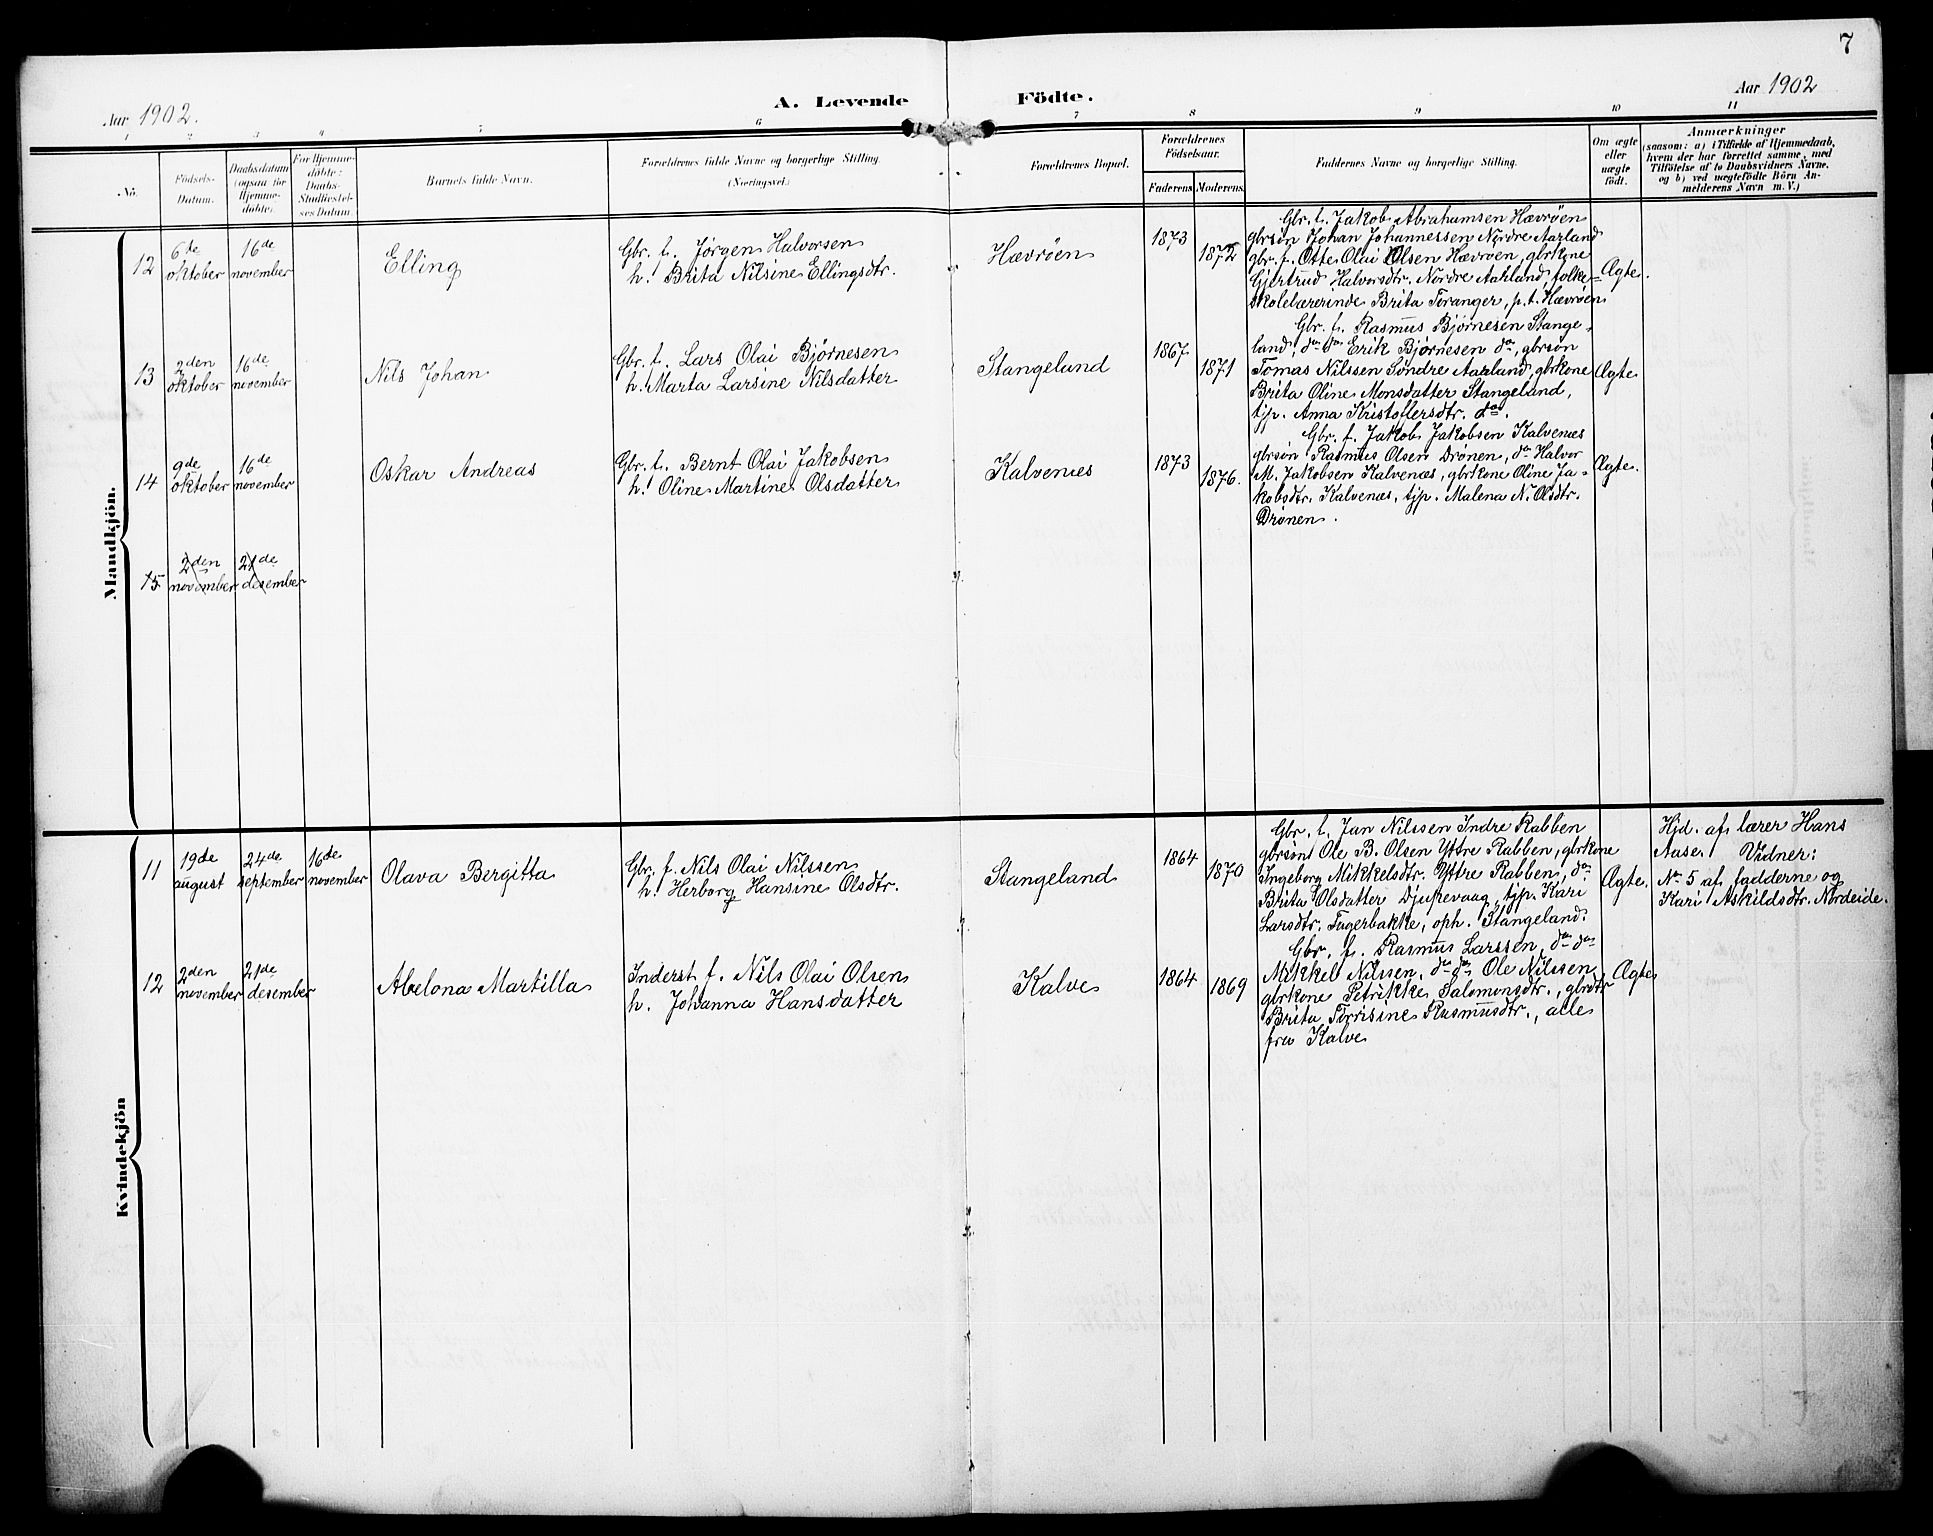 7
Aar 1902.
A. Levende Födte.
Aar 1902
1 2 3 4 5 6 7 8 9 10 11
No.
Födsels-
Datum.
Daabsdatum
(ogsaa for
Hjemme-
döbte).
For Hjemme-
döbte:
Daabs-
Stadfæstel-
ses Datum
Barnets fulde Navn.
Forældrenes fulde Navne og borgerlige Stilling
(Næringsvei.)
Forældrenes Bopæl.
Forældrenes
Födselsaar.
Faderens Moderens
Faddernes Navne og borgerlige Stilling.
Om ægte
eller
uægte
födt.
Anmærkninger
(saasom: a) i Tilfælde af Hjemmedaab,
hvem der har forrettet samme, med
Tilföielse af to Daabsvidners Navne.
og b) ved uægtefödte Börn An-
melderens Navn m. V.)
Mandkjön.
12
6te
oktober
16de
november
Elling
Gbr. f. Jørgen Halvorsen
h. Brita Nilsine Ellingsdtr.
Hævrøen
1873
1872
Gbr. f. Jakob Abrahamsen Hævrøen
gbrsøn Johan Johannessen Nordre Aarland
gbr. f. Otte Olai Olsen Hævrøen, gbrkone
Gjertrud Halvorsdtr. Nordre Aarland, folke-
skolelærerinde Brita Toranger, p.t. Hævrøen
Ægte.
13
2den
oktober
16de
november
Nils Johan
Gbr. f. Lars Olai Bjørnesen
h. Marta Larsine Nilsdatter
Stangeland
1867
1871
Gbr. f. Rasmus Bjørnesen Stange-
land, do do Erik Bjørnesen do, gbrsøn
Tomas Nilssen Søndre Aarland, gbrkone
Brita Oline Monsdatter Stangeland,
tjp. Anna Kristoffersdtr. do.
Ægte
14
9de
oktober
16de
november
Oskar Andreas
Gbr. f. Bernt Olai Jakobsen
h. Oline Martine Olsdatter
Kalvenæs
1873
1876.
Gbr. f. Jakob Jakobsen Kalvenæs
gbrsøn Rasmus Olsen Drønen, do Halvor
M. Jakobsen Kalvenæs, gbrkone Oline Ja-
kobsdtr. Kalvenæs, tjp. Malena N. Olsdtr.
Drønen.
Ægte.
15
2den
november
21de
desember
Kvindekjön
11
19de
august
24de
september
16de
november
Olava Bergitta
Gbr. f. Nils Olai Nilssen
h. Herborg Hansine Olsdtr.
Stangeland
1864
1870
Gbr. f. Jan Nilssen Indre Rabben
gbrsøn Ole B. Olsen Yttre Rabben, gbrkone
Ingeborg Mikkelsdtr. Yttre Rabben, do
Brita Olsdatter Djupevaag, tjp. Kari
Larsdtr. Fagerbakke, oph. Stangeland.
Ægte.
Hjd. af lærer Hans
Aase. Vidner:
No 5 af fadderne og
Kari Askildsdtr. Nordeide.
12
2den
november
21de
desember
Abelona Martilla
Inderst f. Nils Olai Olsen
h. Johanna Hansdatter
Kalve
1864
1869
Gbr. f. Rasmus Larssen, do do
Mikkel Nilssen, do do Ole Nilssen
gbrkone Petrikke Salomonsdtr., gbrdtr
Brita Torrisine Rasmusdtr., alle
fra Kalve
Ægte